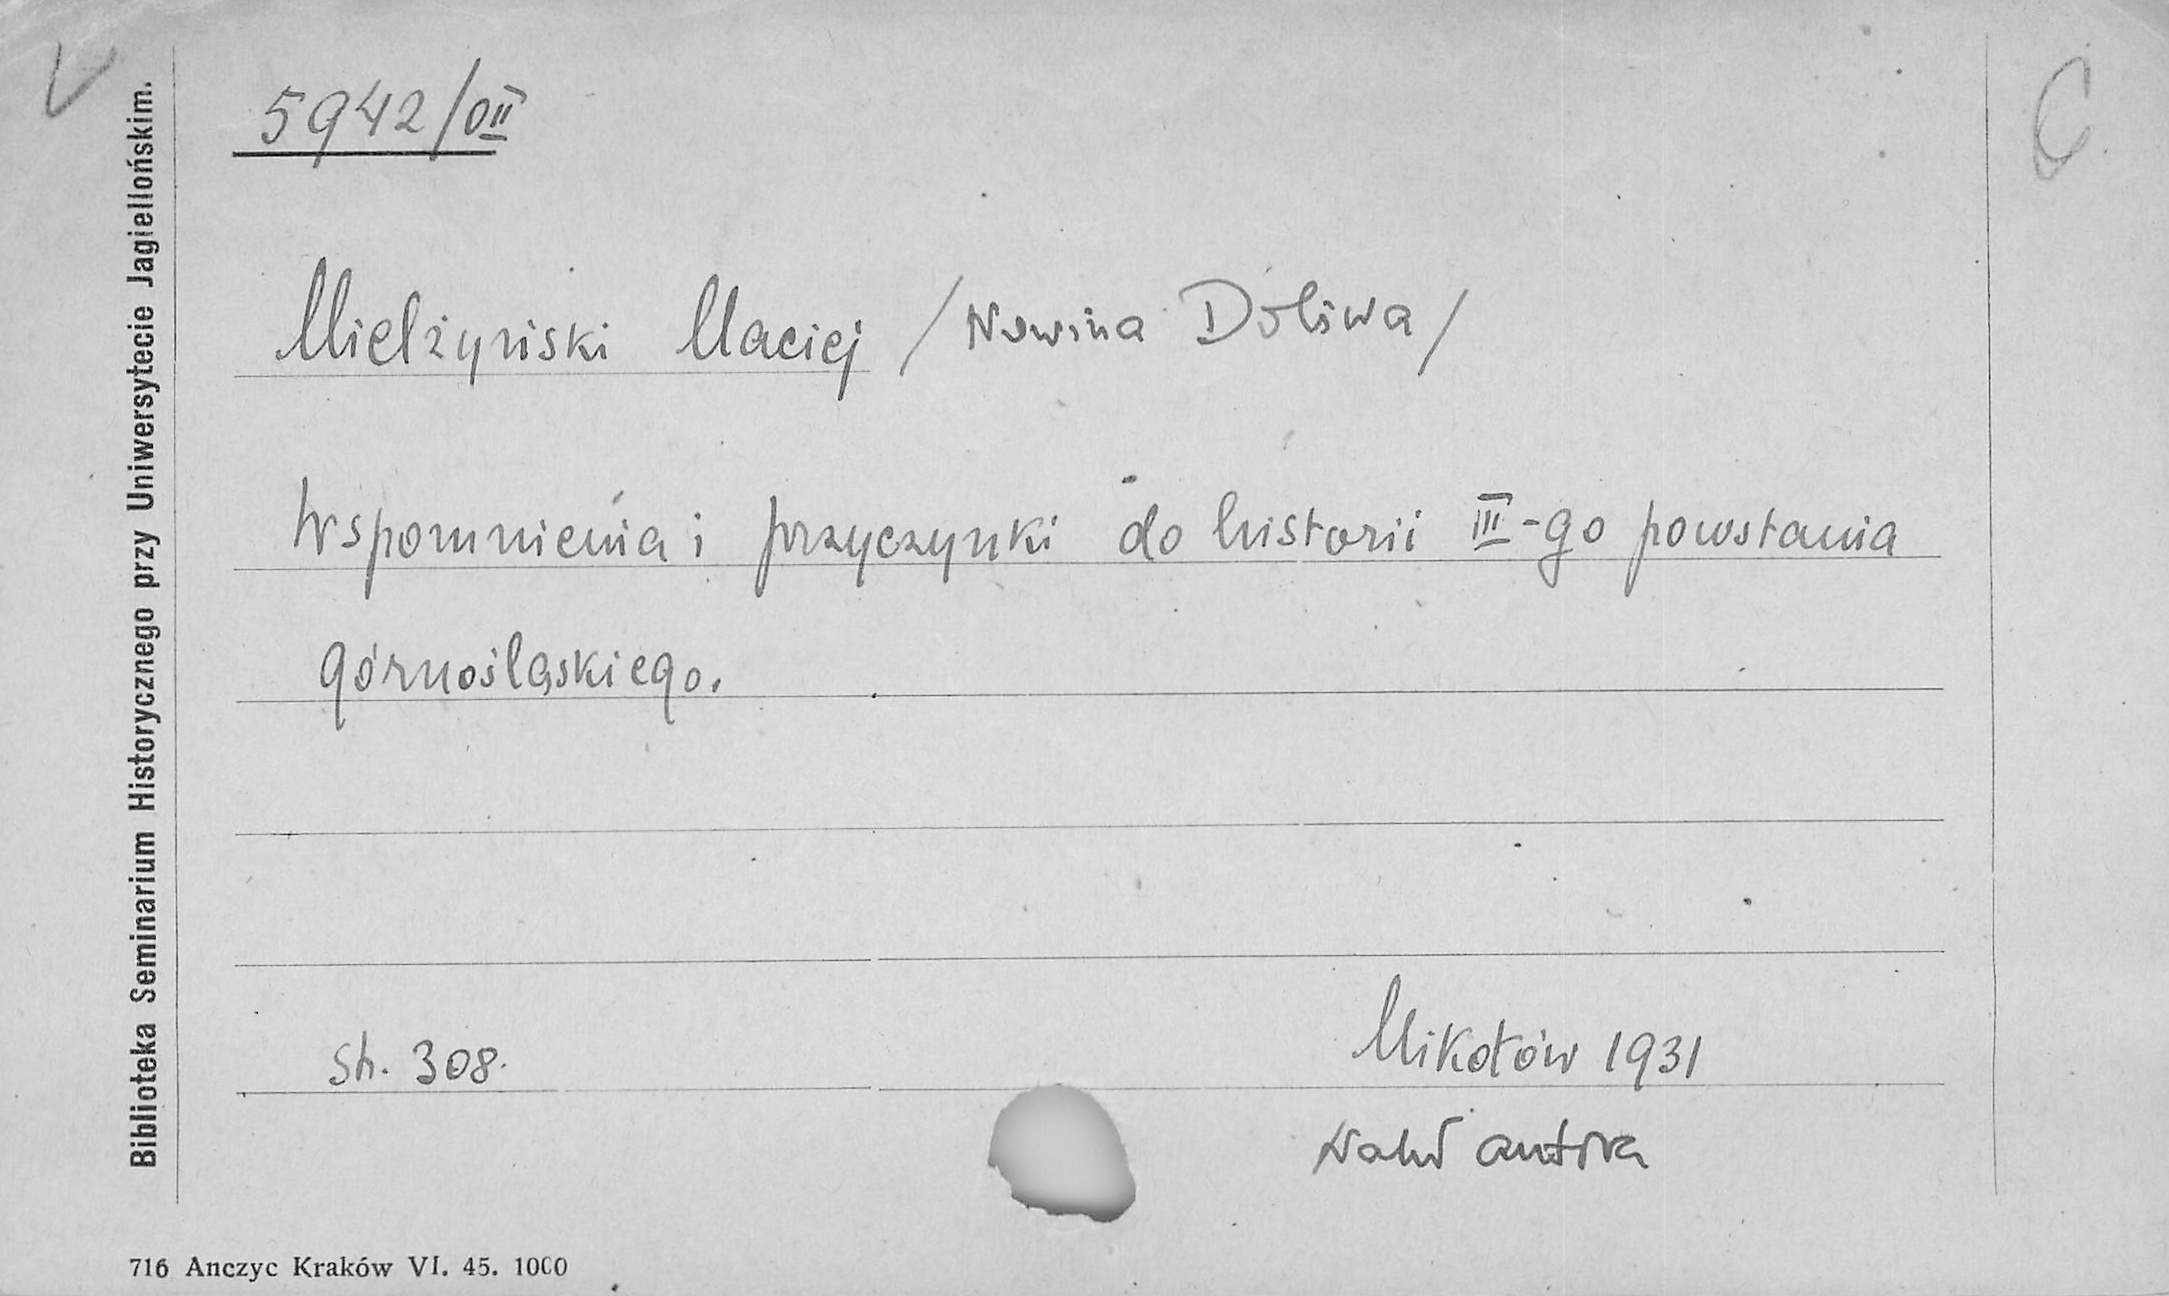 5942/OII
Mielżyński Maciej /Nowina Doliwa/
Wspomnienia i przyczynki do historii III-go powstania
górnośląskiego.
str. 308.
Mikołów 1931
Nakł autora
Biblioteka Seminarium Historycznego przy Uniwersytecie Jagiellońskim.
716 Anczyc Kraków VI. 45. 1000